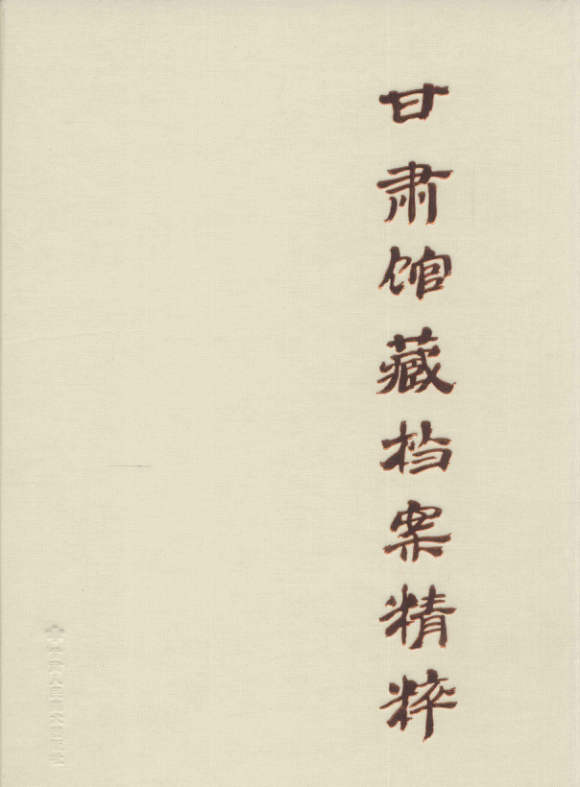 甘肃馆藏档案精粹